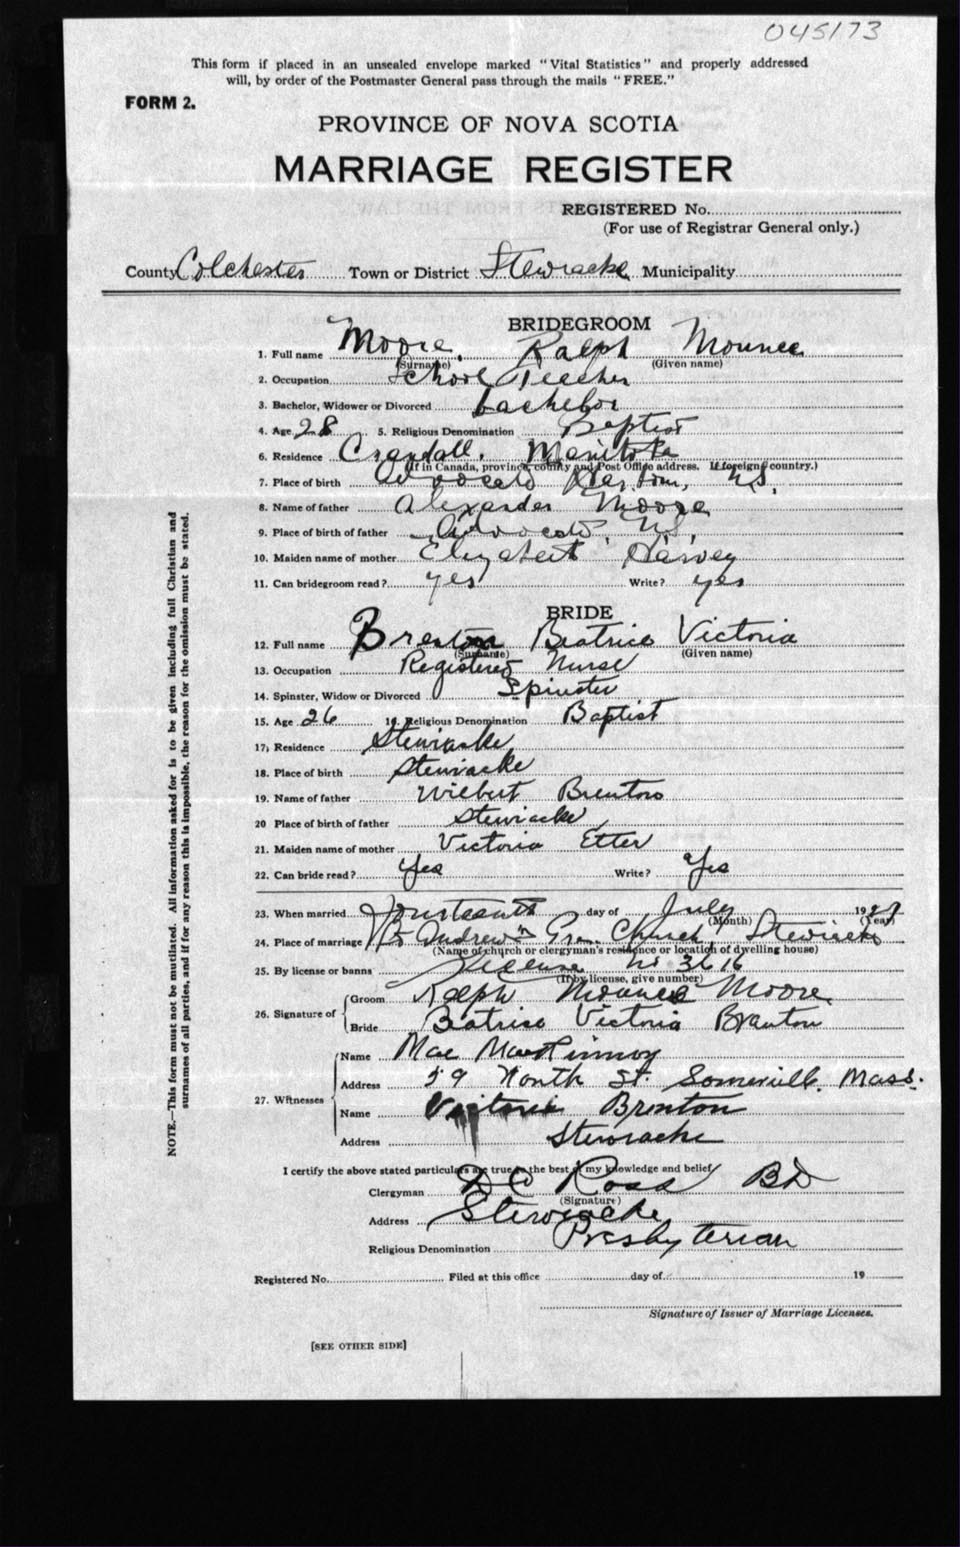 045173
This form if placed in an unsealed envelope marked "Vital Statistics" and properly addressed
will, by order of the Postmaster General pass through the mails "FREE."
FORM 2.
PROVINCE OF NOVA SCOTIA
MARRIAGE REGISTER
REGISTERED No.
(For use of Registrar General only.)
County Colchester Town or District Stewiacke Municipality
BRIDEGROOM
1. Full name Moore, Ralph
(Surname) (Given name)
2. Occupation School Teacher
3. Bachelor, Widower or Divorced bachelor
4. Age 28 5. Religious Denomination Baptist
6. Residence Crandall, Manitoba
(If in Canada, province, county and Post Office address. If foreign, country.)
7. Place of birth Advocate Harbour, N.S.
8. Name of father Alexander Moore
9. Place of birth of father Advocate, N.S.
10. Maiden name of mother Elizabeth Harvey
11. Can bridegroom read? yes Write? yes
BRIDE
12. Full name Brenton Beatrice Victoria
(Surname) (Given name)
13. Occupation Registered Nurse
14. Spinster, Widow or Divorced Spinster
15. Age 26 16. Religious Denomination Baptist
17. Residence Stewiacke
18. Place of birth Stewiacke
19. Name of father Wilbert Brenton
20 Place of birth of father Stewiacke
21. Maiden name of mother Victoria Etter
22. Can bride read? Yes Write? Yes
23. When married Fourteenth day of July 19
(Month) (Year)
24. Place of marriage St Andrew's Church, Stewiacke
(Name of church or clergyman's residence or location of dwelling house)
25. By license or banns License no 3616
(If by license, give number)
26. Signature of
Groom Ralph Moore
Bride Beatrice Victoria Brenton
27. Witnesses
Name Mae MacKinnon
Address 59 North St. Somerville. Mass.
Name Victoria Brenton
Address Stewiacke
I certify the above stated particulars are true to the best of my knowledge and belief
Clergyman D C Ross BD
(Signature)
Address Stewiacke
Religious Denomination Presbyterian
Registered No. Filed at this office day of 19
Signature of Issuer of Marriage Licenses.
[SEE OTHER SIDE]
NOTE.—This form must not be mutilated. All information asked for is to be given including full Christian and
surnames of all parties, and if for any reason this is impossible, the reason for the omission must be stated.